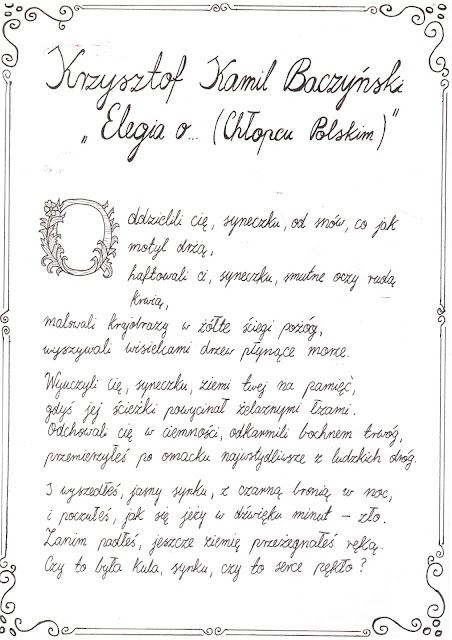 Krzysztof Kamil Baczyński
„Elegia o... (Chłopcu Polskim)"
Oddzielili cię, syneczku, od snów, co jak
motyl drżą,
haftowali ci, syneczku, smutne oczy rudą
krwią,
malowali krajobrazy w żółte ściegi pożóg,
wyszywali wisielcami drzew płynące morze.
Wyuczyli cię, syneczku, ziemi twej na pamięć,
gdyś jej ścieżki powycinał żelaznymi łzami.
Odchowali cię w ciemności, odkarmili bochnem trwóg,
przemierzyłeś po omacku najwstydliwsze z ludzkich dróg.
I wyszedłeś, jasny synku, z czarną bronią w noc,
i poczułeś, jak się jeży w dźwięku minut – zło.
Zanim padłeś, jeszcze ziemię przeżegnałeś ręką.
Czy to była kula, synku, czy to serce pękło?